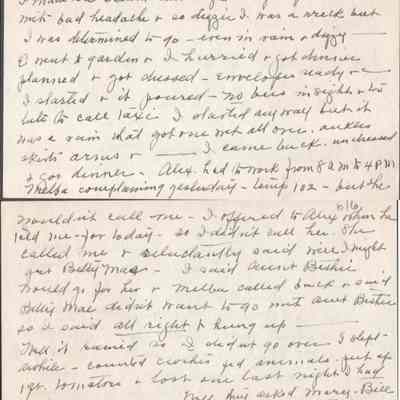 with bad headache & so dizzie I was a wreck but
I was determined to go - even in rain & dizzy -
O went to garden & I hurried & got dinner
planned & got dressed - envelopes ready & -
I started & it poured - no bus in sight & too
late to call taxi I started any way but it
was a rain that got one wet all over, ankles
skirts arms & - I came back, undressed
& got dinner - Alex had to work from 8 AM to 4 P.M.
Melba complaining yesterday - temp 102 - but she
8/6/
wouldn't call me - I offered to Alex when he
told me - for today - so I didn't call her. She
called me & reluctantly said well I might
get Betty Mae - I said Aunt Bishie
would go for her & Melba called back & said
Betty Mae didn't want to go with Aunt Bishie
so I said all right & hung up -
Well it rained so I didn't go over I slept
awhile - counted clothes fed animals - put up
1 qt. tomatoes & lost one last night I had
asked Mary - Bill